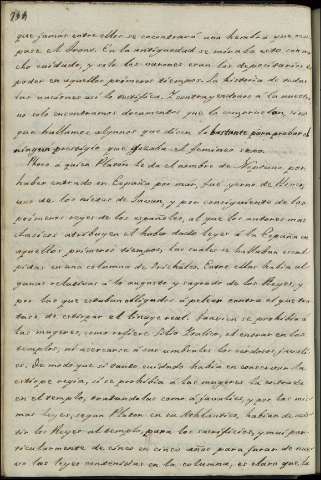 que jamas entre ellos se encontrará una hembra que ocu-
pase el trono. En la antiguedad se miraba esto con mu-
cho cuidado, y solo los varones eran los depositarios del
poder en aquellos primeros tiempos. La historia de todas
las naciones así lo testifica. Y contrayendonos á la nuestra,
no solo encontramos documentos que la comprueban, sino
que hallamos algunos que dicen lo bastante para probar el
ningun prestigio que gozaba el femineo sexo.
á quien Platon le da el nombre de Neptuno, por
haber entrado en España por mar, fué yerno de
uno de los nietos de Javan, y por consiguiente de los
primeros reyes de los españoles, al que los autores mas
clasicos atribuyen el haber dado leyes á la España en
aquellos primeros tiempos, las cuales se hallaban escul-
pidas en una columna de Entre ellas habia al-
gunas relativas á lo augusto y sagrado de los Reyes, y
por las que estaban obligados á pelear contra el que tra-
tase de estirpar el linage real. Tambien se prohibia á
las mugeres, como refiere Silio Italico, el entrar en los
templos, ni acercarse á sus umbrales los cerdosos javali-
es. De modo que si tanto cuidado habia en conservar la
estirpe regia, si se prohibia á las mugeres la entrada
en el templo, tratandolas como á javalies, y por las mis-
mas leyes, segun Platon en su Athlantico, habian de asis-
tir los Reyes al templo, para los sacrificios, y mas par-
ticularmente de cinco en cinco años para jurar de nue-
vo las leyes contenidas en la columna, es claro que la